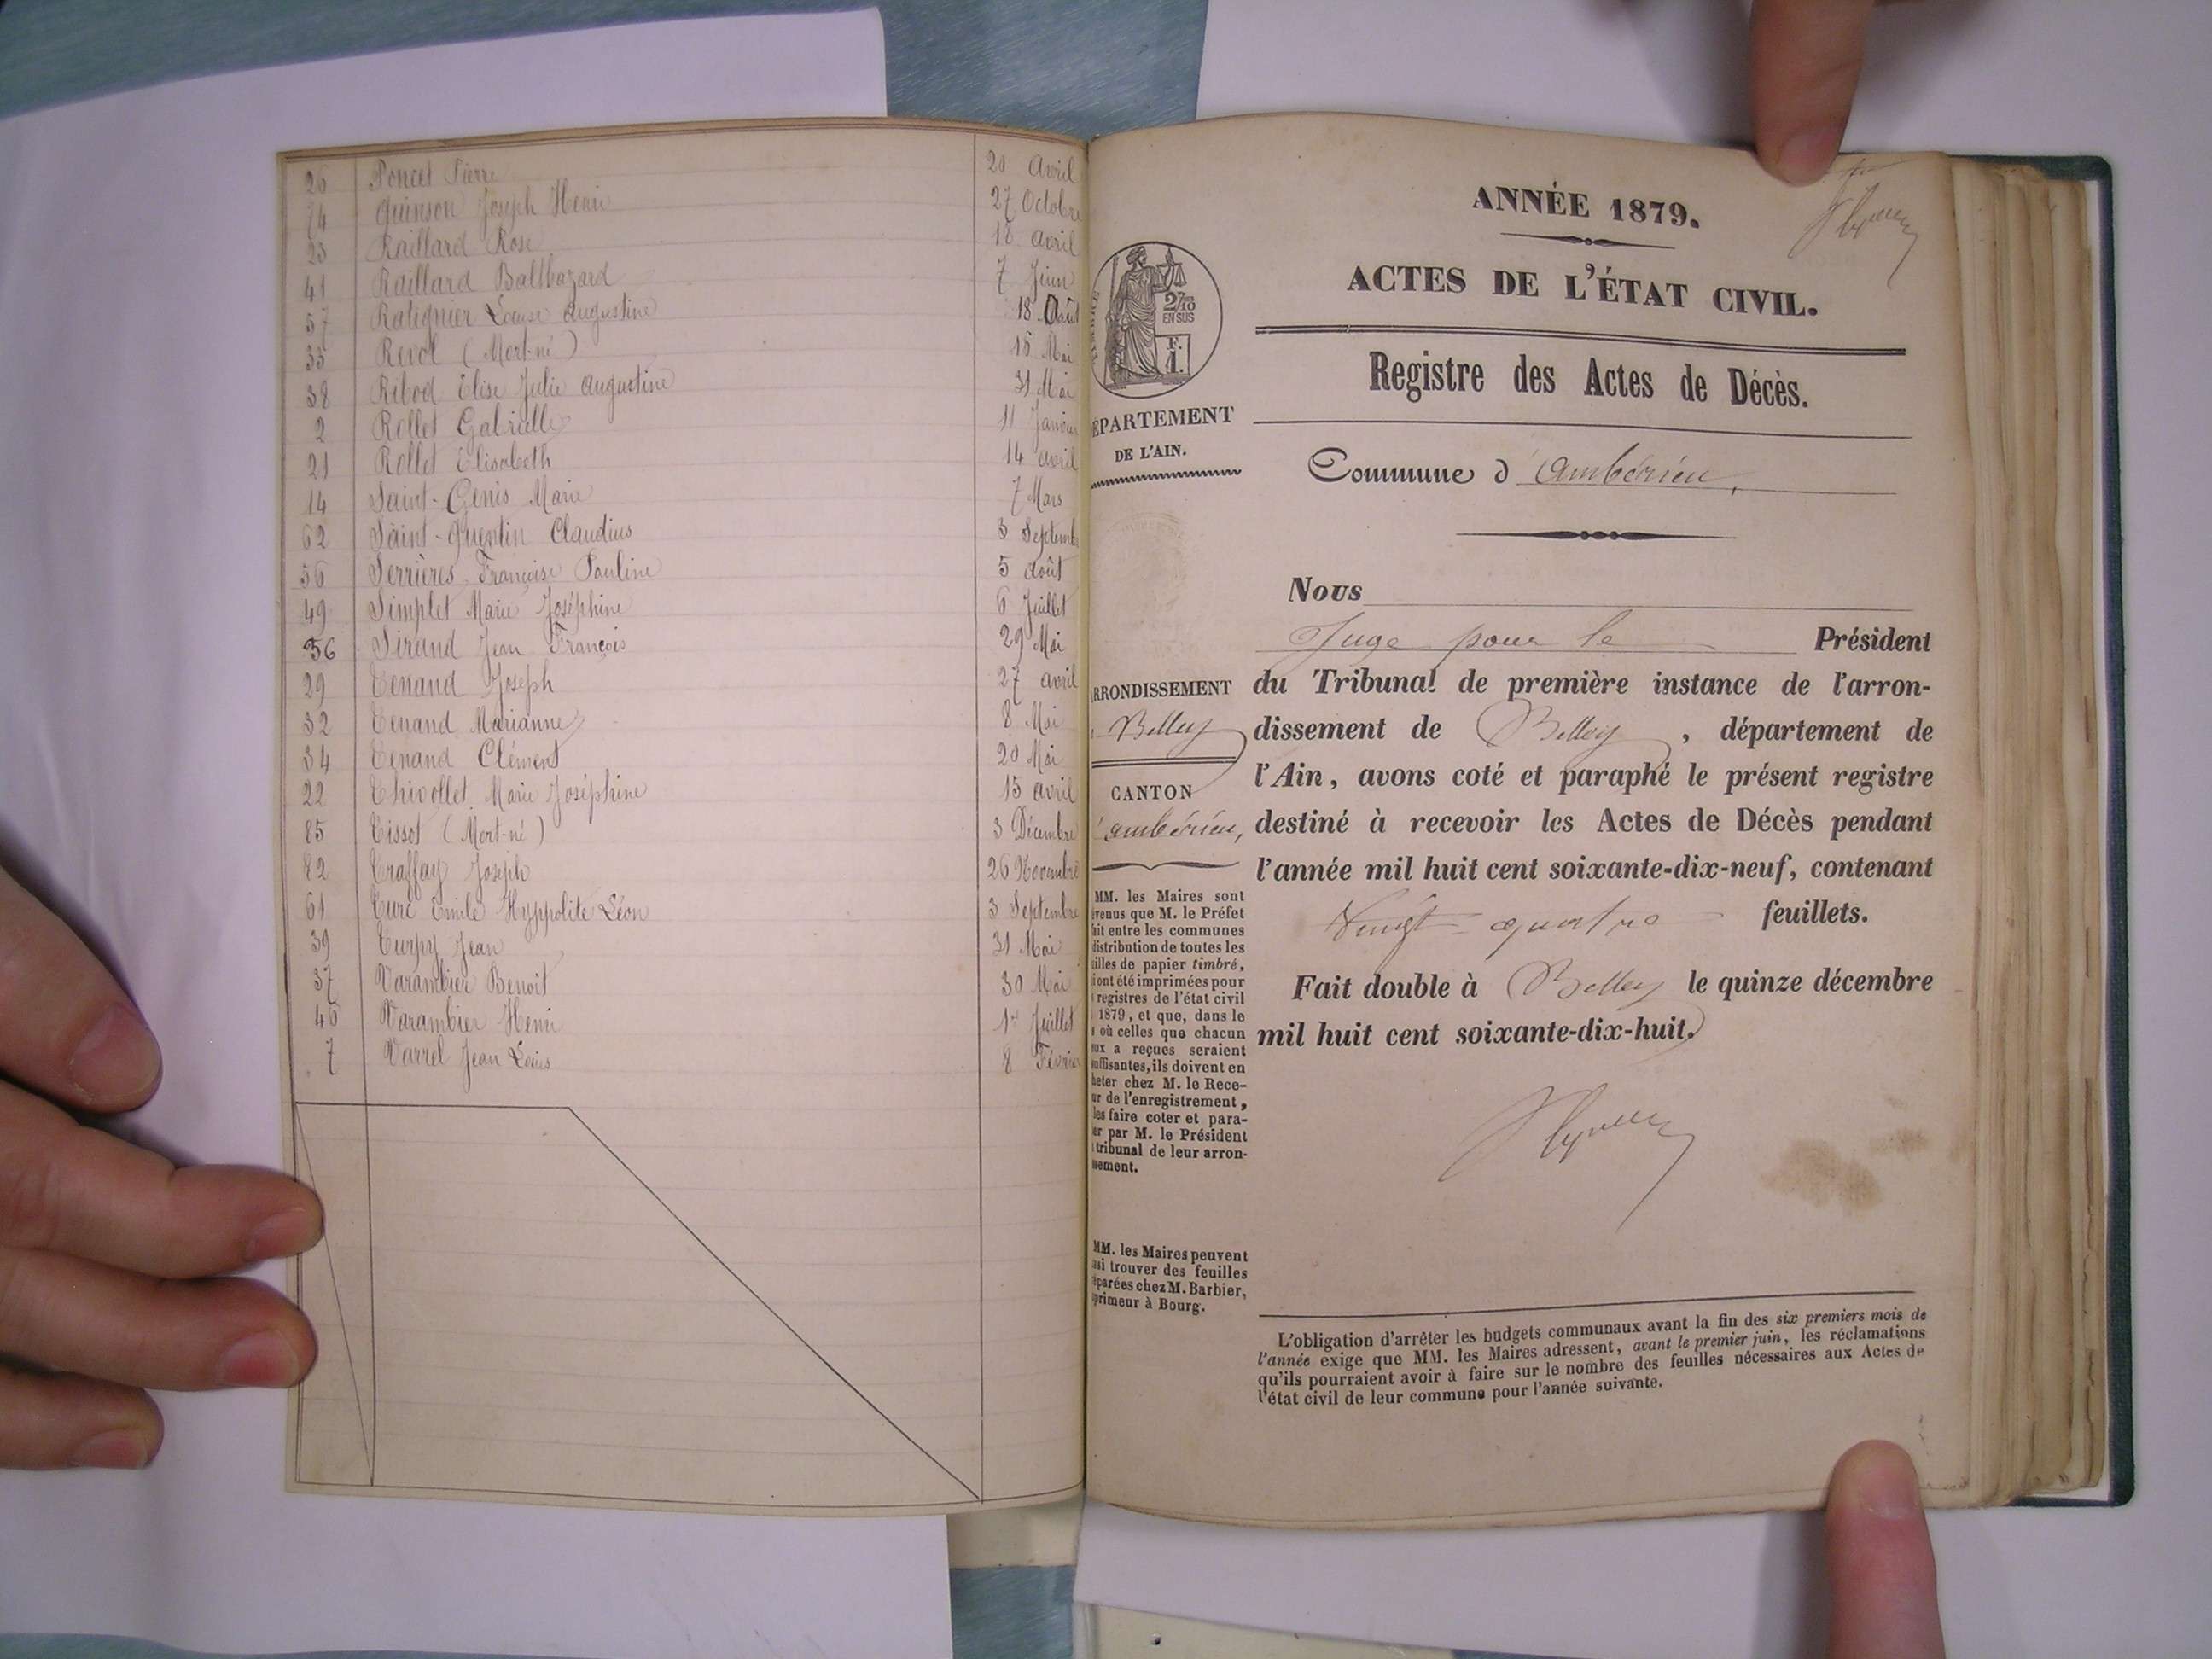 26 Poncet Pierre 20 Avril
74 Quinson Joseph Henri 27 Octobre
23 Raillard Rose 18 avril
41 Raillard Balthazard 7 Juin
57 Ratignier Louise Augustine 18 Août
33 Revol (Mort-né) 15 Mai
38 Ribod Elise Julie Augustine 31 Mai
2 Rollet Gabrielle 11 Janvier
21 Rollet Elisabeth 14 avril
14 Saint-Genis Marie 7 Mars
62 Saint-Quentin Claudius 3 Septemb
56 Serrières Françoise Pauline 5 Août
49 Simplet Marie Joséphine 6 Juillet
36 Sirand Jean François 29 Mai
29 Tenand Joseph 27 avril
32 Tenand Marianne 8 Mai
34 Tenand Clément 20 Mai
22 Thivollet Marie Joséphine 15 avril
85 Tissot (Mort-né) 3 Décembre
82 Traffay Joseph 26 Novembre
61 Turc Emile Hyppolite Léon 3 Septembre
39 Turpy Jean 31 Mai
37 Varambier Benoit 30 Mai
46 Varambier Henri 1er Juillet
7 Varrel Jean Louis 8 Février
ANNÉE 1879.
ACTES DE L'ÉTAT CIVIL.
2/10 EN SUS
F.
1.
Registre des Actes de Décès.
ÉPARTEMENT
DE L'AIN.
Commune d'Ambérieu,
Nous
Juge pour le Président
du Tribunal de première instance de l'arron-
dissement de Belley, département de
l'Ain, avons coté et paraphé le présent registre
destiné à recevoir les Actes de Décès pendant
l'année mil huit cent soixante-dix-neuf, contenant
Vingt-quatre feuillets.
Fait double à Belley le quinze décembre
mil huit cent soixante-dix-huit.
RRONDISSEMENT
Belley
CANTON
ambérieu,
MM. les Maires sont
évenus que M. le Préfet
ait entre les communes
distribution de toutes les
uilles de papier timbré,
i ont été imprimées pour
s registres de l'état civil
1879, et que, dans le
s où celles que chacun
eux a reçues seraient
suffisantes, ils doivent en
heter chez M. le Rece-
ur de l'enregistrement,
les faire coter et para-
er par M. le Président
tribunal de leur arron-
ssement.
MM. les Maires peuvent
ssi trouver des feuilles
éparées chez M. Barbier,
primeur à Bourg.
L'obligation d'arrêter les budgets communaux avant la fin des six premiers mois de
l'année exige que MM. les Maires adressent, avant le premier juin, les réclamations
qu'ils pourraient avoir à faire sur le nombre des feuilles nécessaires aux Actes de
l'état civil de leur commune pour l'année suivante.